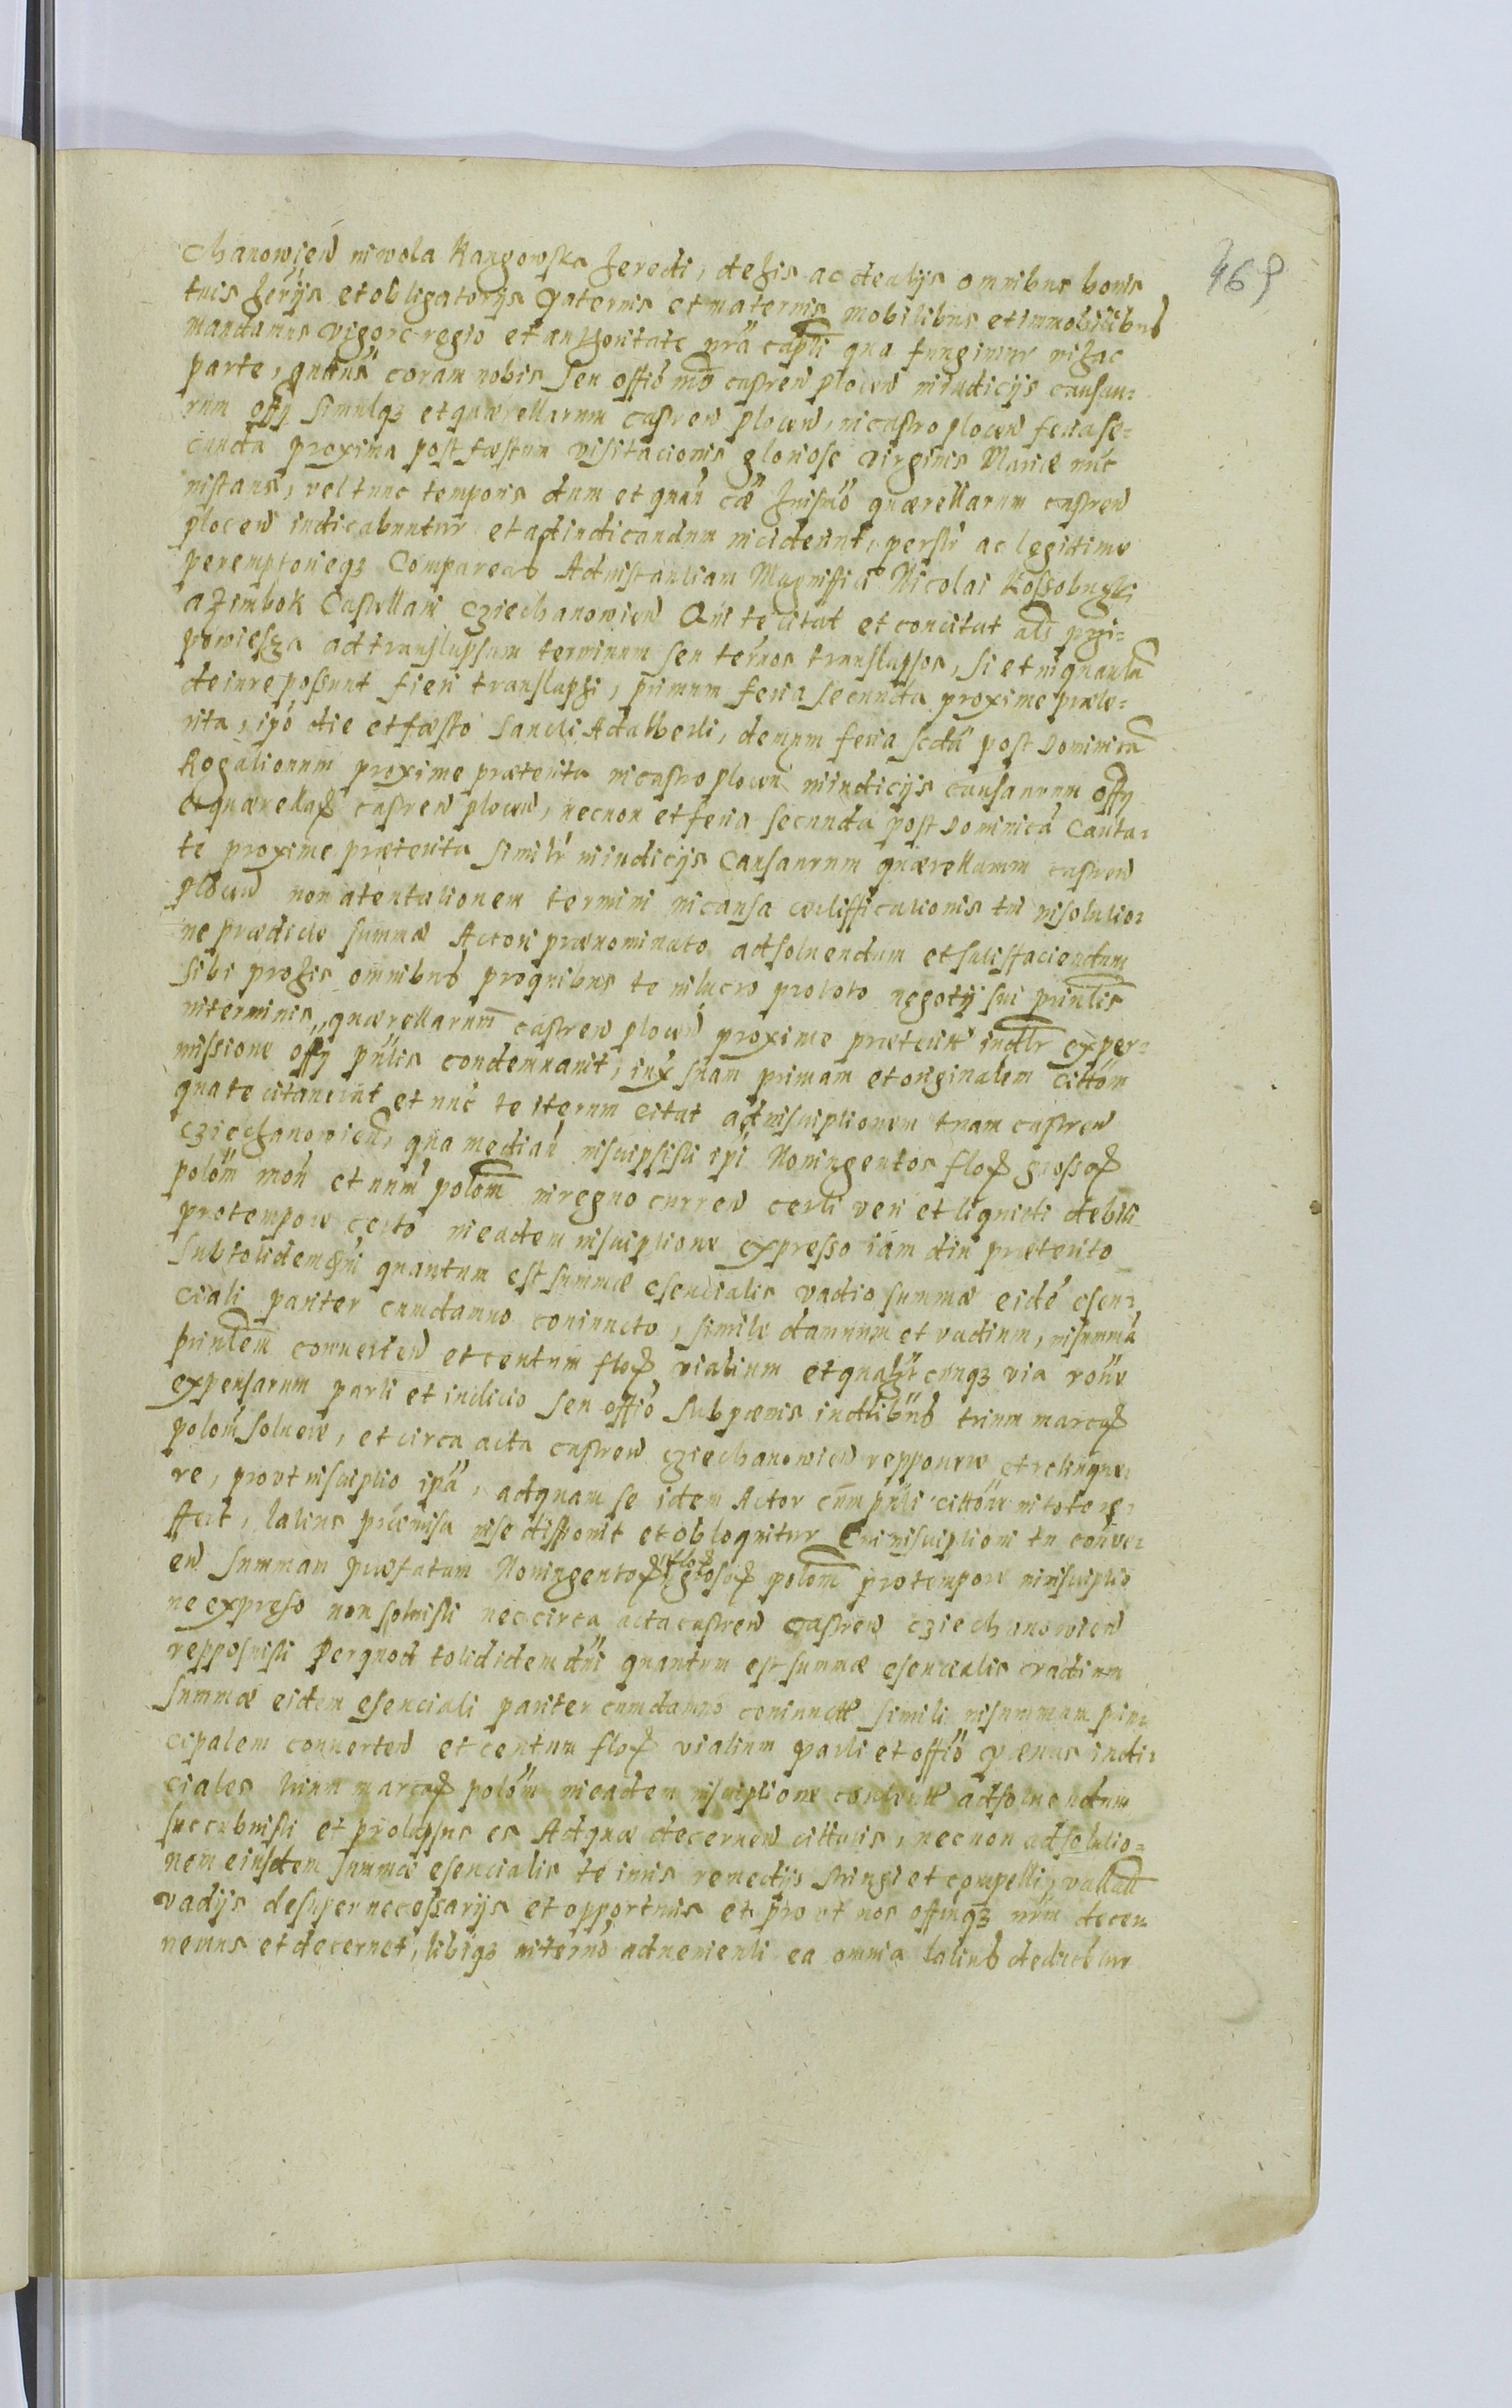 469
chanowien in wola Rangowska heredi, de his ac de alijs omnibus bonis
tuis herijs et obligatorijs paternis et maternis mobilibus et immobilibus
mandamus vigore regio et authoritate nrã capli qua fungimur in hac
parte, quatus coram nobis seu offio nrõ castren plocen in iudicijs causau:
rum offy simulqz et quærellarum castren plocen, in castro plocen feria se=
cunda proxima post fæstum visitacionis gloriose virginis Mariæ nuc
instans, vel tunc temporis dum et quan cæ huismo quærellarum castren
plocen iudicabuntur et ad iudicandum inciderint, persr ac legitime
peremptorieqz Compareas Ad instantiam Magniffici Nicolai Kossobuzki
a zimbok Castellani cziechanowien Qui te citat et concitat als przi=
powiesza ad translapsum terminum seu ternos translapsos, si et in quantu
de iure possunt fieri translapsi, primum feria secunda proxime præte=
rita, ipo die et fæsto Sancti Adalberti, demum feria scda post Dominica
Rogationum proxime præterita in castro plocen in iudicijs causaurum offy
et quærellar castren plocen, necnon et feria secunda post Dominica Canta:
te proxime præterita similr in iudicijs Causaurum quærellarum castren
plocen non atentationem termini in causa ædifficationis tu insolutio:
ne prædicte summæ Actori prænominato ad soluendum et satisfaciendum
sibi pro his omnibus pro quibus te in lucro pro toto negoty sui prinlis
in terminis quærellarum castren plocen proxime præterit iudlr ex per=
missione offy pnlis condemnavit, iux suam primam et originalem citton
qua te citaverat et nuc te iterum citat ad inscriptionem tuam castren
cziechanowien, qua median inscripsisti ipi Noningentos flor grossor
polom mon et num polom in regno curren certi veri et liquidi debiti
pro tempore certo in eadem inscriptione expresso iam diu præterito
sub totidem dni quantum est summæ esencialis vadio summæ eide esen:
ciali pariter cum damno coniuncto, simile damnum et vadium, in summa
prinlem converten et centum flor vialium et qualrcunqz via roue
expensarum parti et iudicio seu offio sub pænis iudlibus trium marcar
polom solvere, et circa acta castren cziechanowien repponere et relinque:
re, prout inscriptio ipa, ad quam se idem Actor cum pnli citton in toto re:
ffert, latius præmissa in se disponit et obloquitur Cui inscriptioni tu conve:
en summam præfatam Noningentor flor grosor polom pro tempore in inscriptio
ne expreso non solvisti nec circa acta castren castren cziechanowien
repposuisti Per quod totididem dni quantum est summæ esencialis vadium
summæ eidem esenciali pariter cum damno coniuncte simili in summam prin
cipalem converten et centum flor vialium parti et offio pænas iudi:
ciales trium marcar polom in eadem inscriptione content ad soluendum
succubuisti et prolapsus es Ad quæ decernen cittaris, necnon ad solutio=
nem eiusdem summæ esencialis te iuris remedijs stringi et compelli, vallatt
vadijs desuper necessarijs et opportunis et prout nos offiumqz nrm decer
nemus et decernet, tibiqz in terno advenienti ea omnia latius deducentur